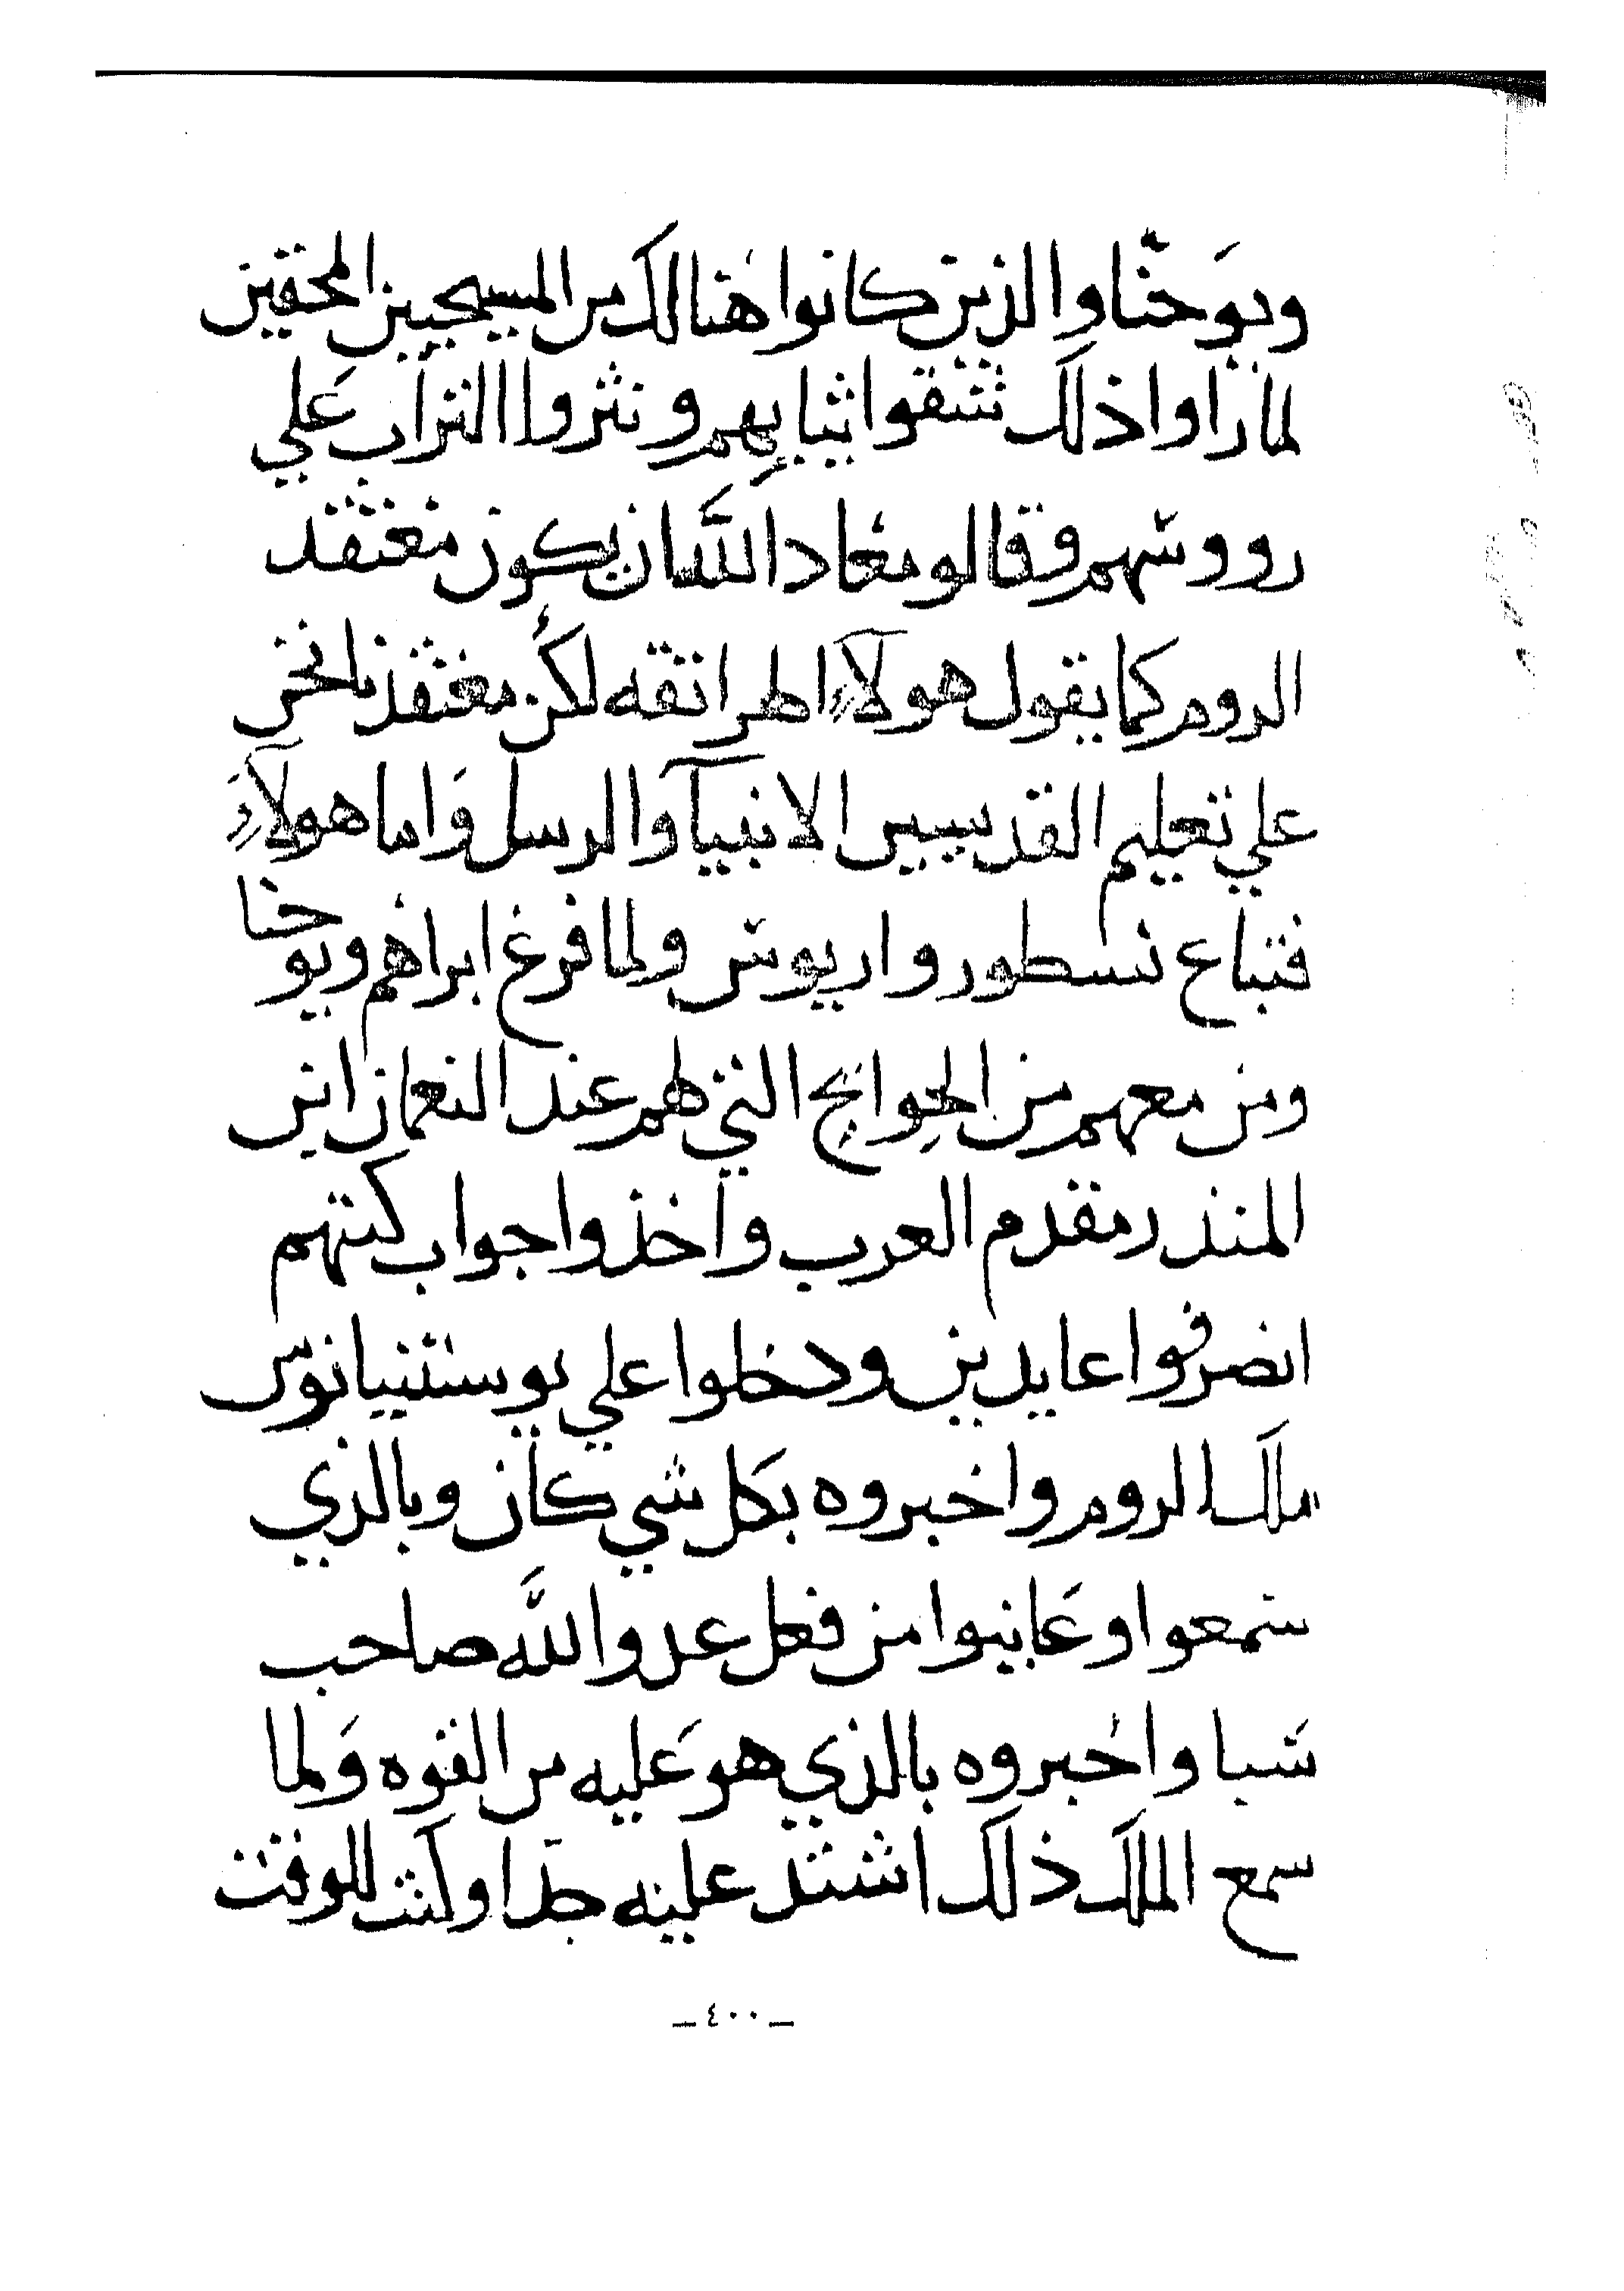 ويوَحنّا والذين كانوا هنالك من المسيحيين المحقين
لما راوا ذلك شقوا ثيابهم ونثروا التراب عَلي
رووسهم وقالو معاد اللّه ان يكون معتقد
الروم كما يقول هولآء الهراتقه لكن معتقدنا نحن
علي تعليم القديسين الانبيآ والرسل وَاما هولآء
فتباع نسطور واريوس ولما فرغ ابراهم ويوحنا
ومن معهم من الحوايج التي لهم عند النعمان ابن
المندر مقدم العرب واخذوا جواب كتبهم
انصرفوا عايدين ودخلوا علي يوستنيانوس
ملك الروم واخبروه بكل شي كان وبالذي
سمعوا وعَاينوا من فعل عدو اللّه صاحب
سَبا واخبروه بالذي هو عَليه من القوه وَلما
سمع الملك ذلك اشتد عليه جدا وكتب للوقت
ـ ٤٠٠ ـ